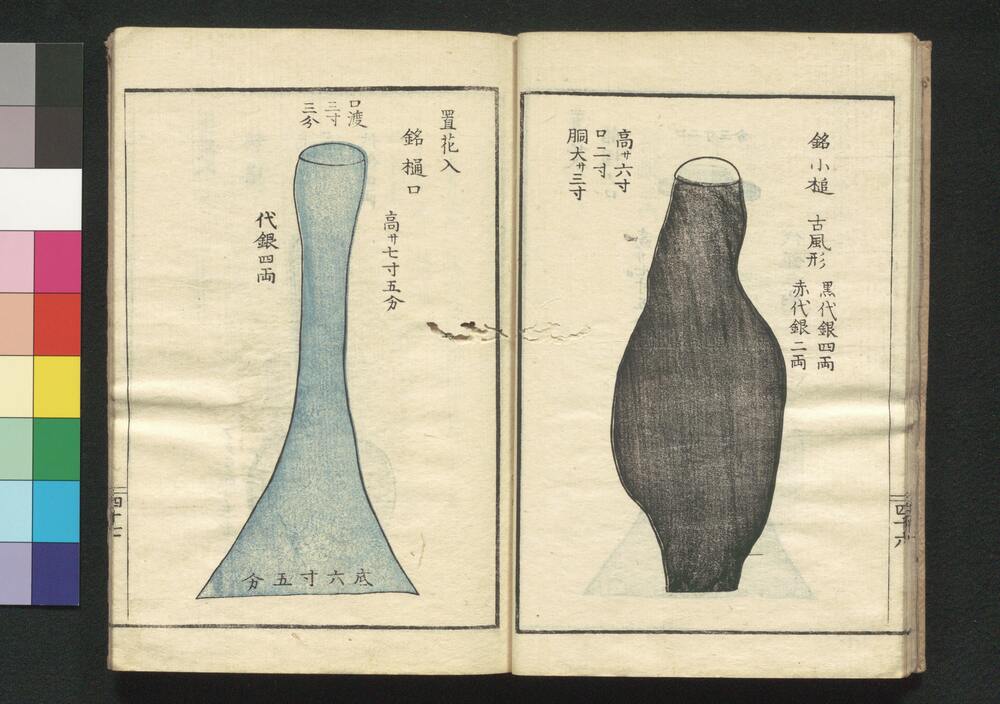 銘小槌
古風形
黒代銀四両
赤代銀二両
高サ六寸
口二寸
胴大サ三寸
四十六
置花入
銘樋口
高サ七寸五分
口渡
三寸
三分
代銀四両
底六寸五分
四十七